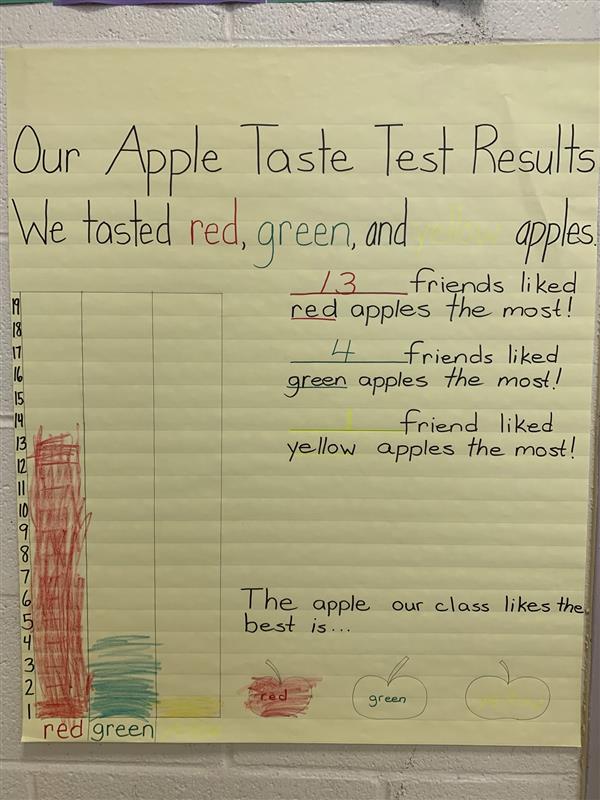 Our Apple Taste Test Results
We tasted red, green, and yellow apples.
13 friends liked
red apples the most!
4 friends liked
green apples the most!
1 friend liked
yellow apples the most!
19
18
17
16
15
14
13
12
11
10
9
8
7
6
5
4
3
2
1
red green yellow
The apple our class likes the
best is...
red green yellow